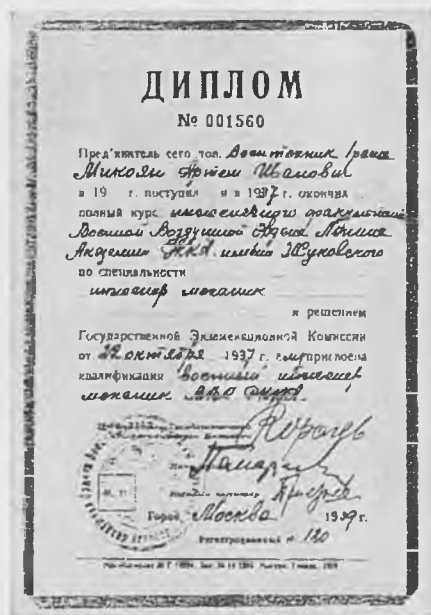 ДИПЛОМ
№ 001560
Пред'явитель сего тов. Воентехник Iранга
Микоян Артем Иванович
в 19 г. поступил и в 1937 г. окончил
полный курс инженерного факультета
Военной Воздушной Ордена Ленина
Академии РККА имени Жуковского
по специальности
инженер механик
и решением
Государственной Экзаменационной Комиссии
от 22 октября 1937 г. ему присвоена
квалификация "Военный инженер
механик
Город Москва 1939 г.
Регистрационный № 120